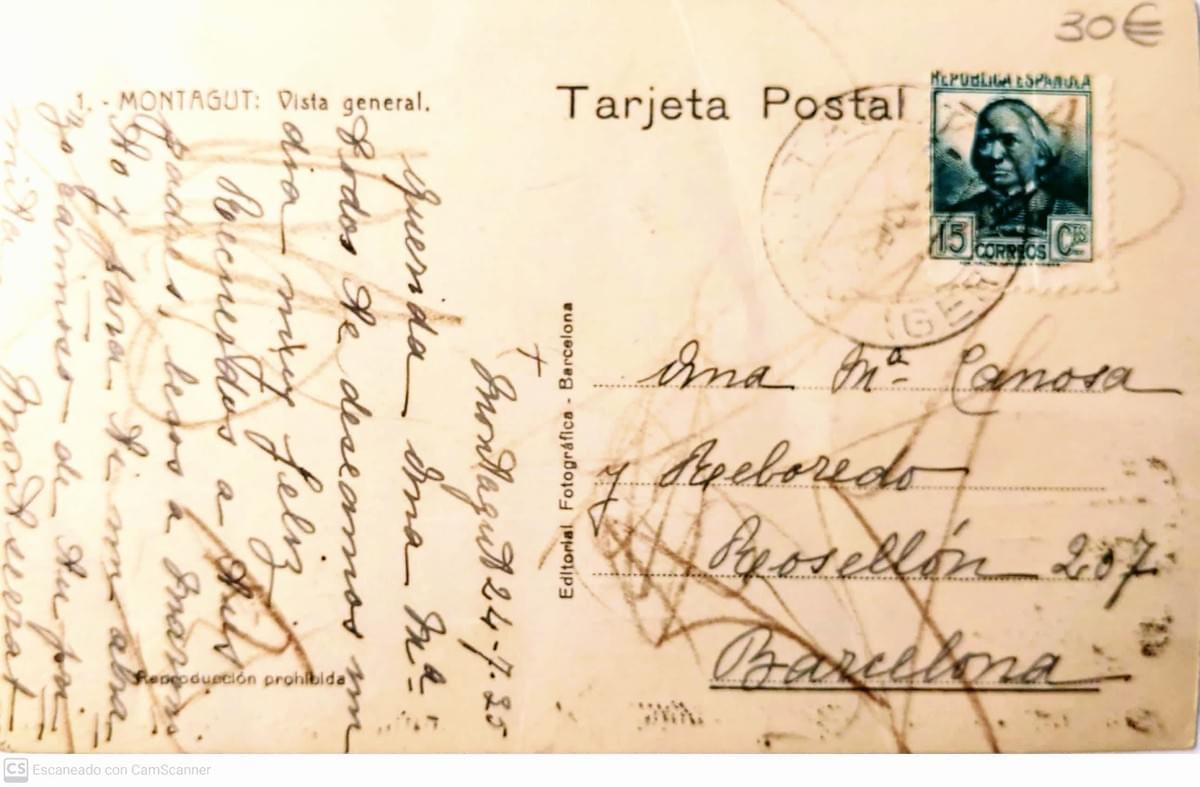 30€
1. - MONTAGUT: Vista general.
Tarjeta Postal
REPUBLICA ESPAÑOLA
15 CORREOS Cts
GER
Editorial Fotográfica - Barcelona
Reproducción prohibida
+
Montagut 24-7-35
Querida Ana Mª
todos te deseamos un
dia muy feliz
Recuerdos a tus
padres, besos a
tto y para ti un abra
zo cariñoso de tu pri
Montserrat
Ana Mª Canosa
y Reboredo
Rosellón 207
Barcelona
CS Escaneado con CamScanner